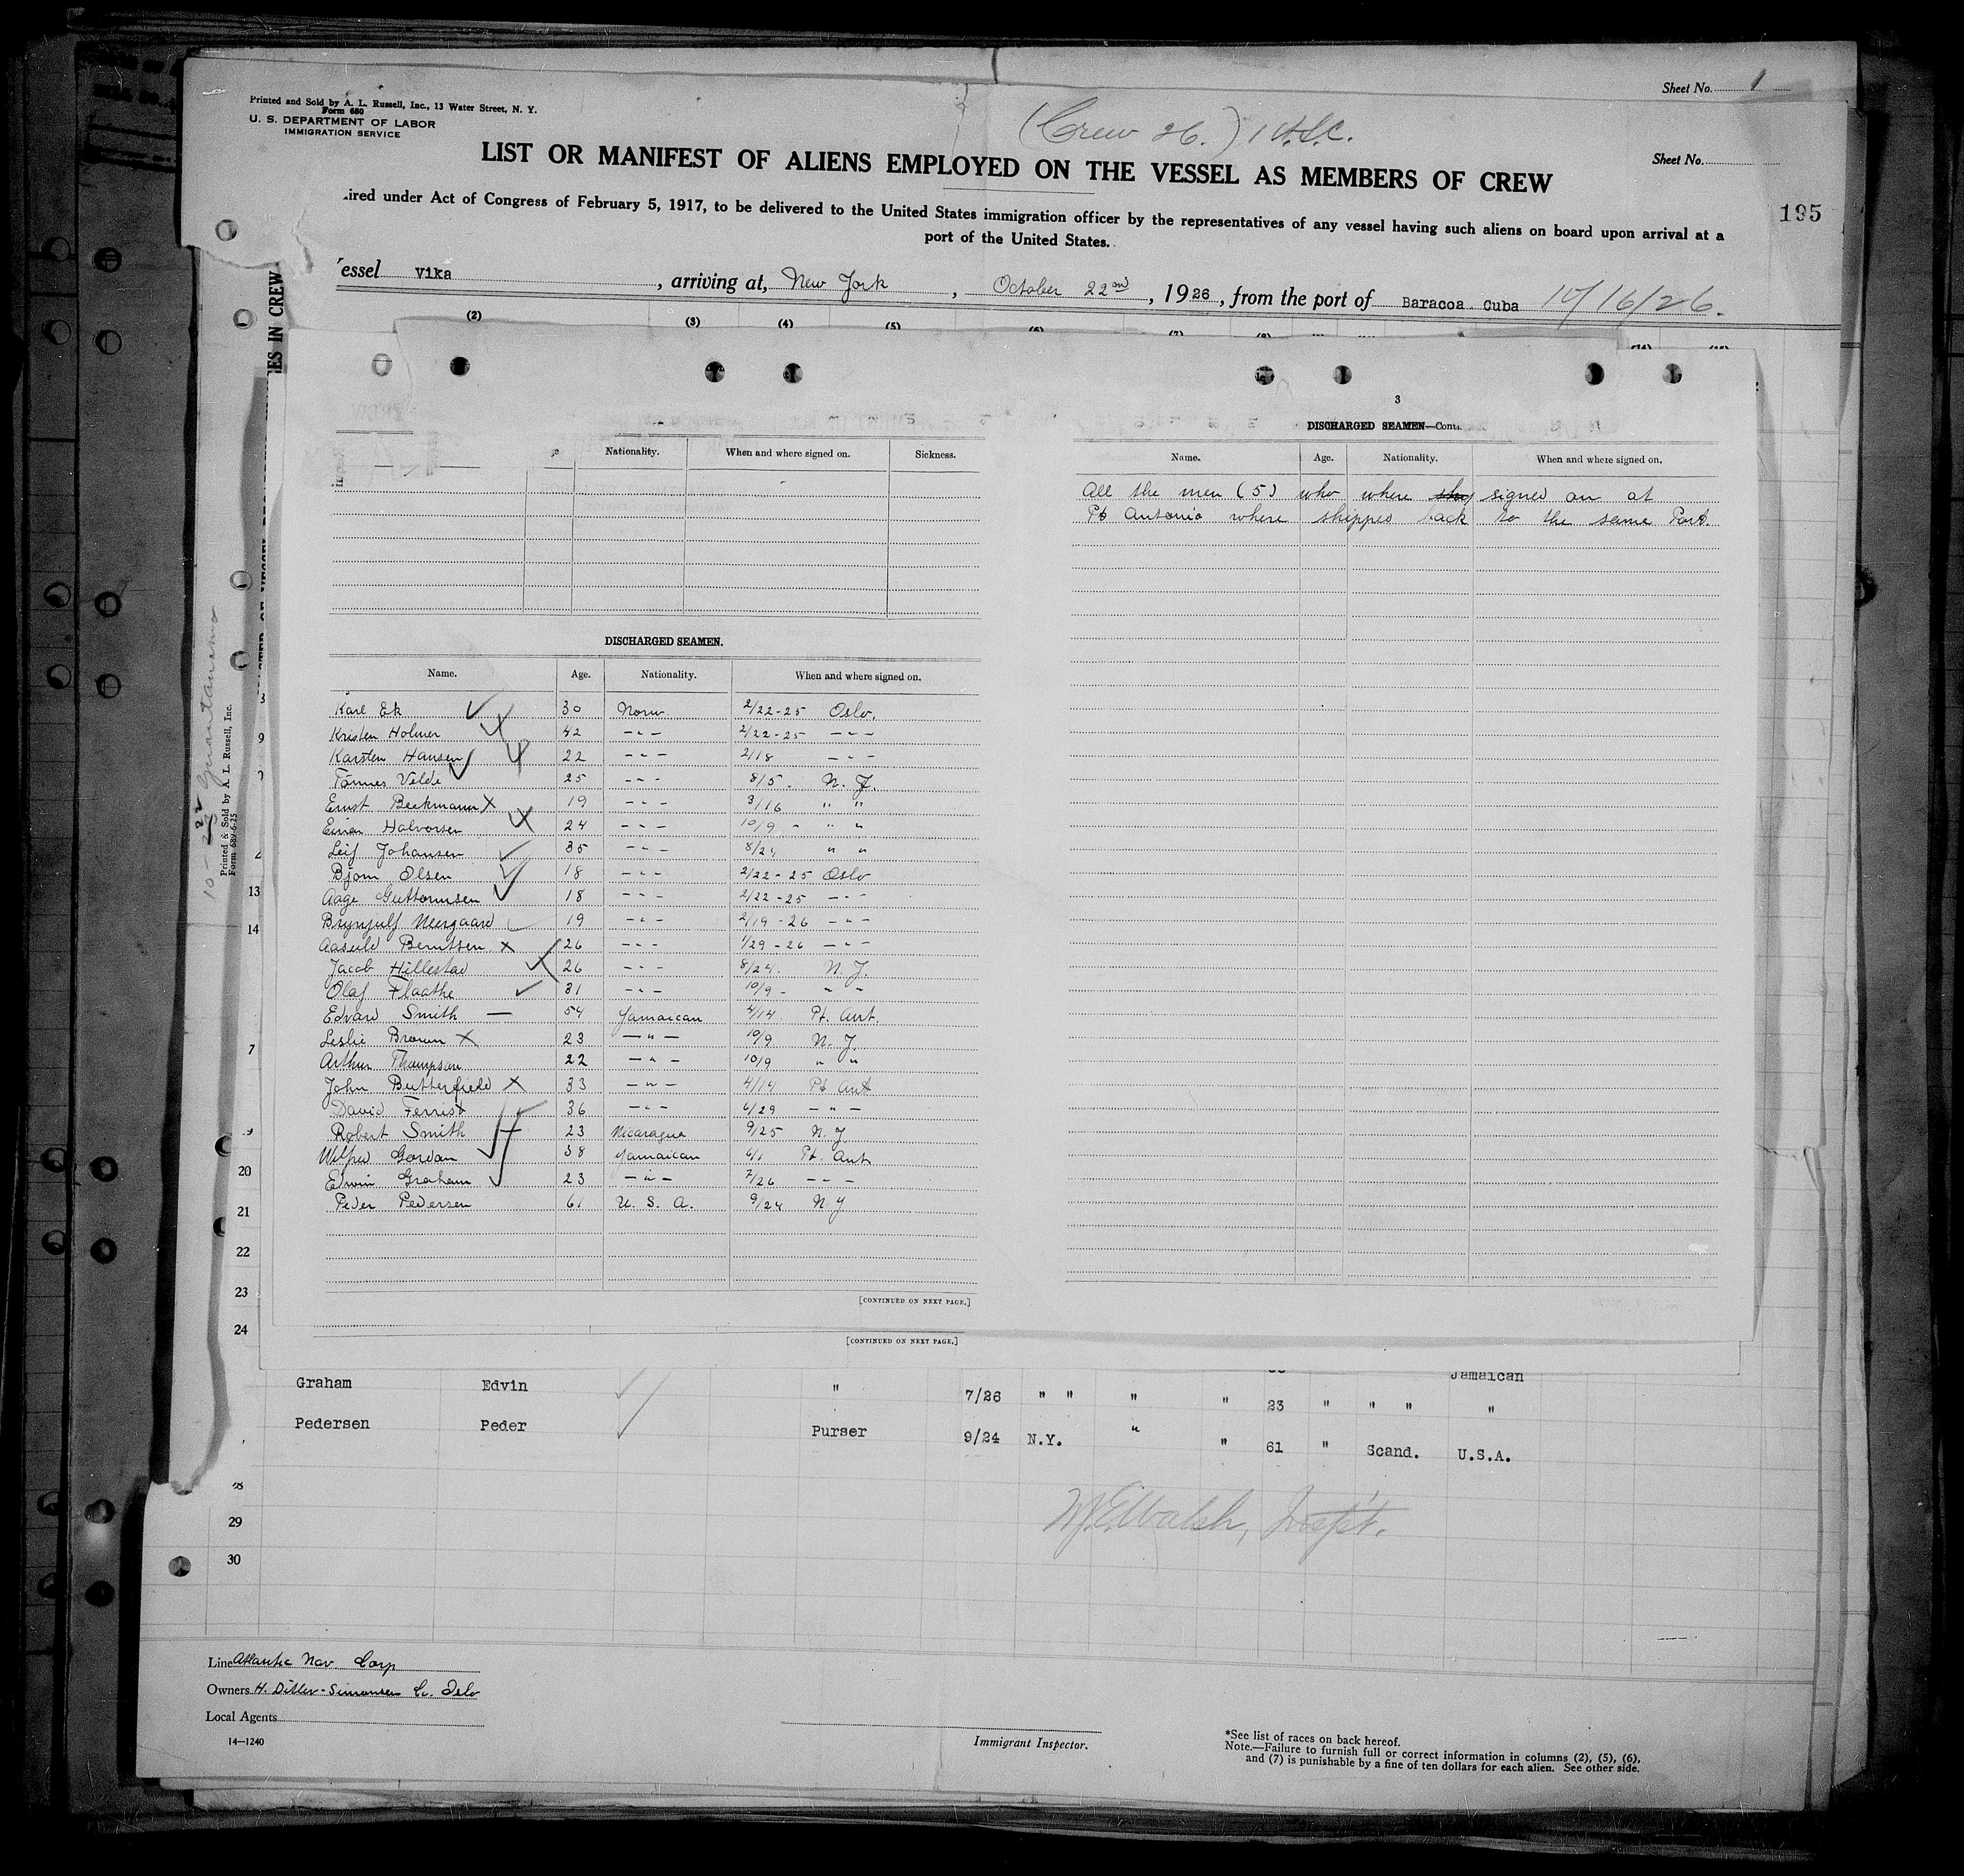 Sheet No. 1
Printed and Sold by A. L. Russell, Inc., 13 Water Street, N. Y.
Form 680
U. S. DEPARTMENT OF LABOR
IMMIGRATION SERVICE
(Crew 26.) 1 U.S.C.
LIST OR MANIFEST OF ALIENS EMPLOYED ON THE VESSEL AS MEMBERS OF CREW
Sheet No.
ired under Act of Congress of February 5, 1917, to be delivered to the United States immigration officer by the representatives of any vessel having such aliens on board upon arrival at a
port of the United States.
195
essel Vika, arriving at, New York, October 22nd, 1926, from the port of Baracoa Cuba 10/16/26.
(2) (3) (4) (5) (6) (7) (8)
Nationality. When and where signed on. Sickness.
DISCHARGED SEAMEN.
Name. Age. Nationality. When and where signed on.
Karl Ek 30 Norw 2/22-25 Oslo.
Kristen Holmer 42 -"- 2/22-25 -"-
Karsten Hansen 22 -"- 2/18 -"-
Tönnes Velde 25 -"- 8/5. N.Y.
Ernst Beekmann 19 -"- 3/16 " "
Einar Halvorsen 24 -"- 10/9 - " "
Leif Johansen 35 -"- 8/24 " "
Bjorn Olsen 18 -"- 2/22-25 Oslo
Aage Guttormsen 18 -"- 2/22-25 -"-
Brynjulf Neergaard 19 -"- 2/19-26 -"-
Aasuld Berntsen 26 -"- 1/29-26 -"-
Jacob Hillestad 26 -"- 8/24. N.Y.
Olaf Flaathe 31 -"- 10/9 - " "
Edvard Smith 54 Jamaican 4/14 Pt. Ant.
Leslie Brown 23 -"- 10/9 N.Y.
Arthur Thompson 22 -"- 10/9 " "
John Butterfield 33 -"- 4/14 Pt Ant
David Ferrist 36 -"- 6/29 -"-
Robert Smith 23 Nicaragua 9/25 N.Y
Wilfred Gordon 38 Jamaican 6/1 Pt. Ant
Edwin Graham 23 -"- 7/26 -"-
Peder Pedersen 61 U. S. A. 9/24 N.Y
[CONTINUED ON NEXT PAGE.]
[CONTINUED ON NEXT PAGE.]
3
DISCHARGED SEAMEN—Cont.
Name. Age. Nationality. When and where signed on.
All the men (5) who where signed on at
Pt Antonio where shipped back to the same Port.
10-22 Guantanamo
Printed & Sold by A. L. Russell, Inc.
Form 689-6-25
ES IN CREW
9
13
14
7
20
21
22
23
24
Jamaican
Graham Edvin " 7/26 " " " " 23 " " " "
Pedersen Peder Purser 9/24 N.Y. " " 61 " Scand. U.S.A.
29
30
W.E. Walsh, Insp't.
Line Atlantic Nav. Corp
Owners H. Ditlev-Simonsen Co. Oslo
Local Agents
14—1240
Immigrant Inspector.
*See list of races on back hereof.
Note.—Failure to furnish full or correct information in columns (2), (5), (6),
and (7) is punishable by a fine of ten dollars for each alien. See other side.